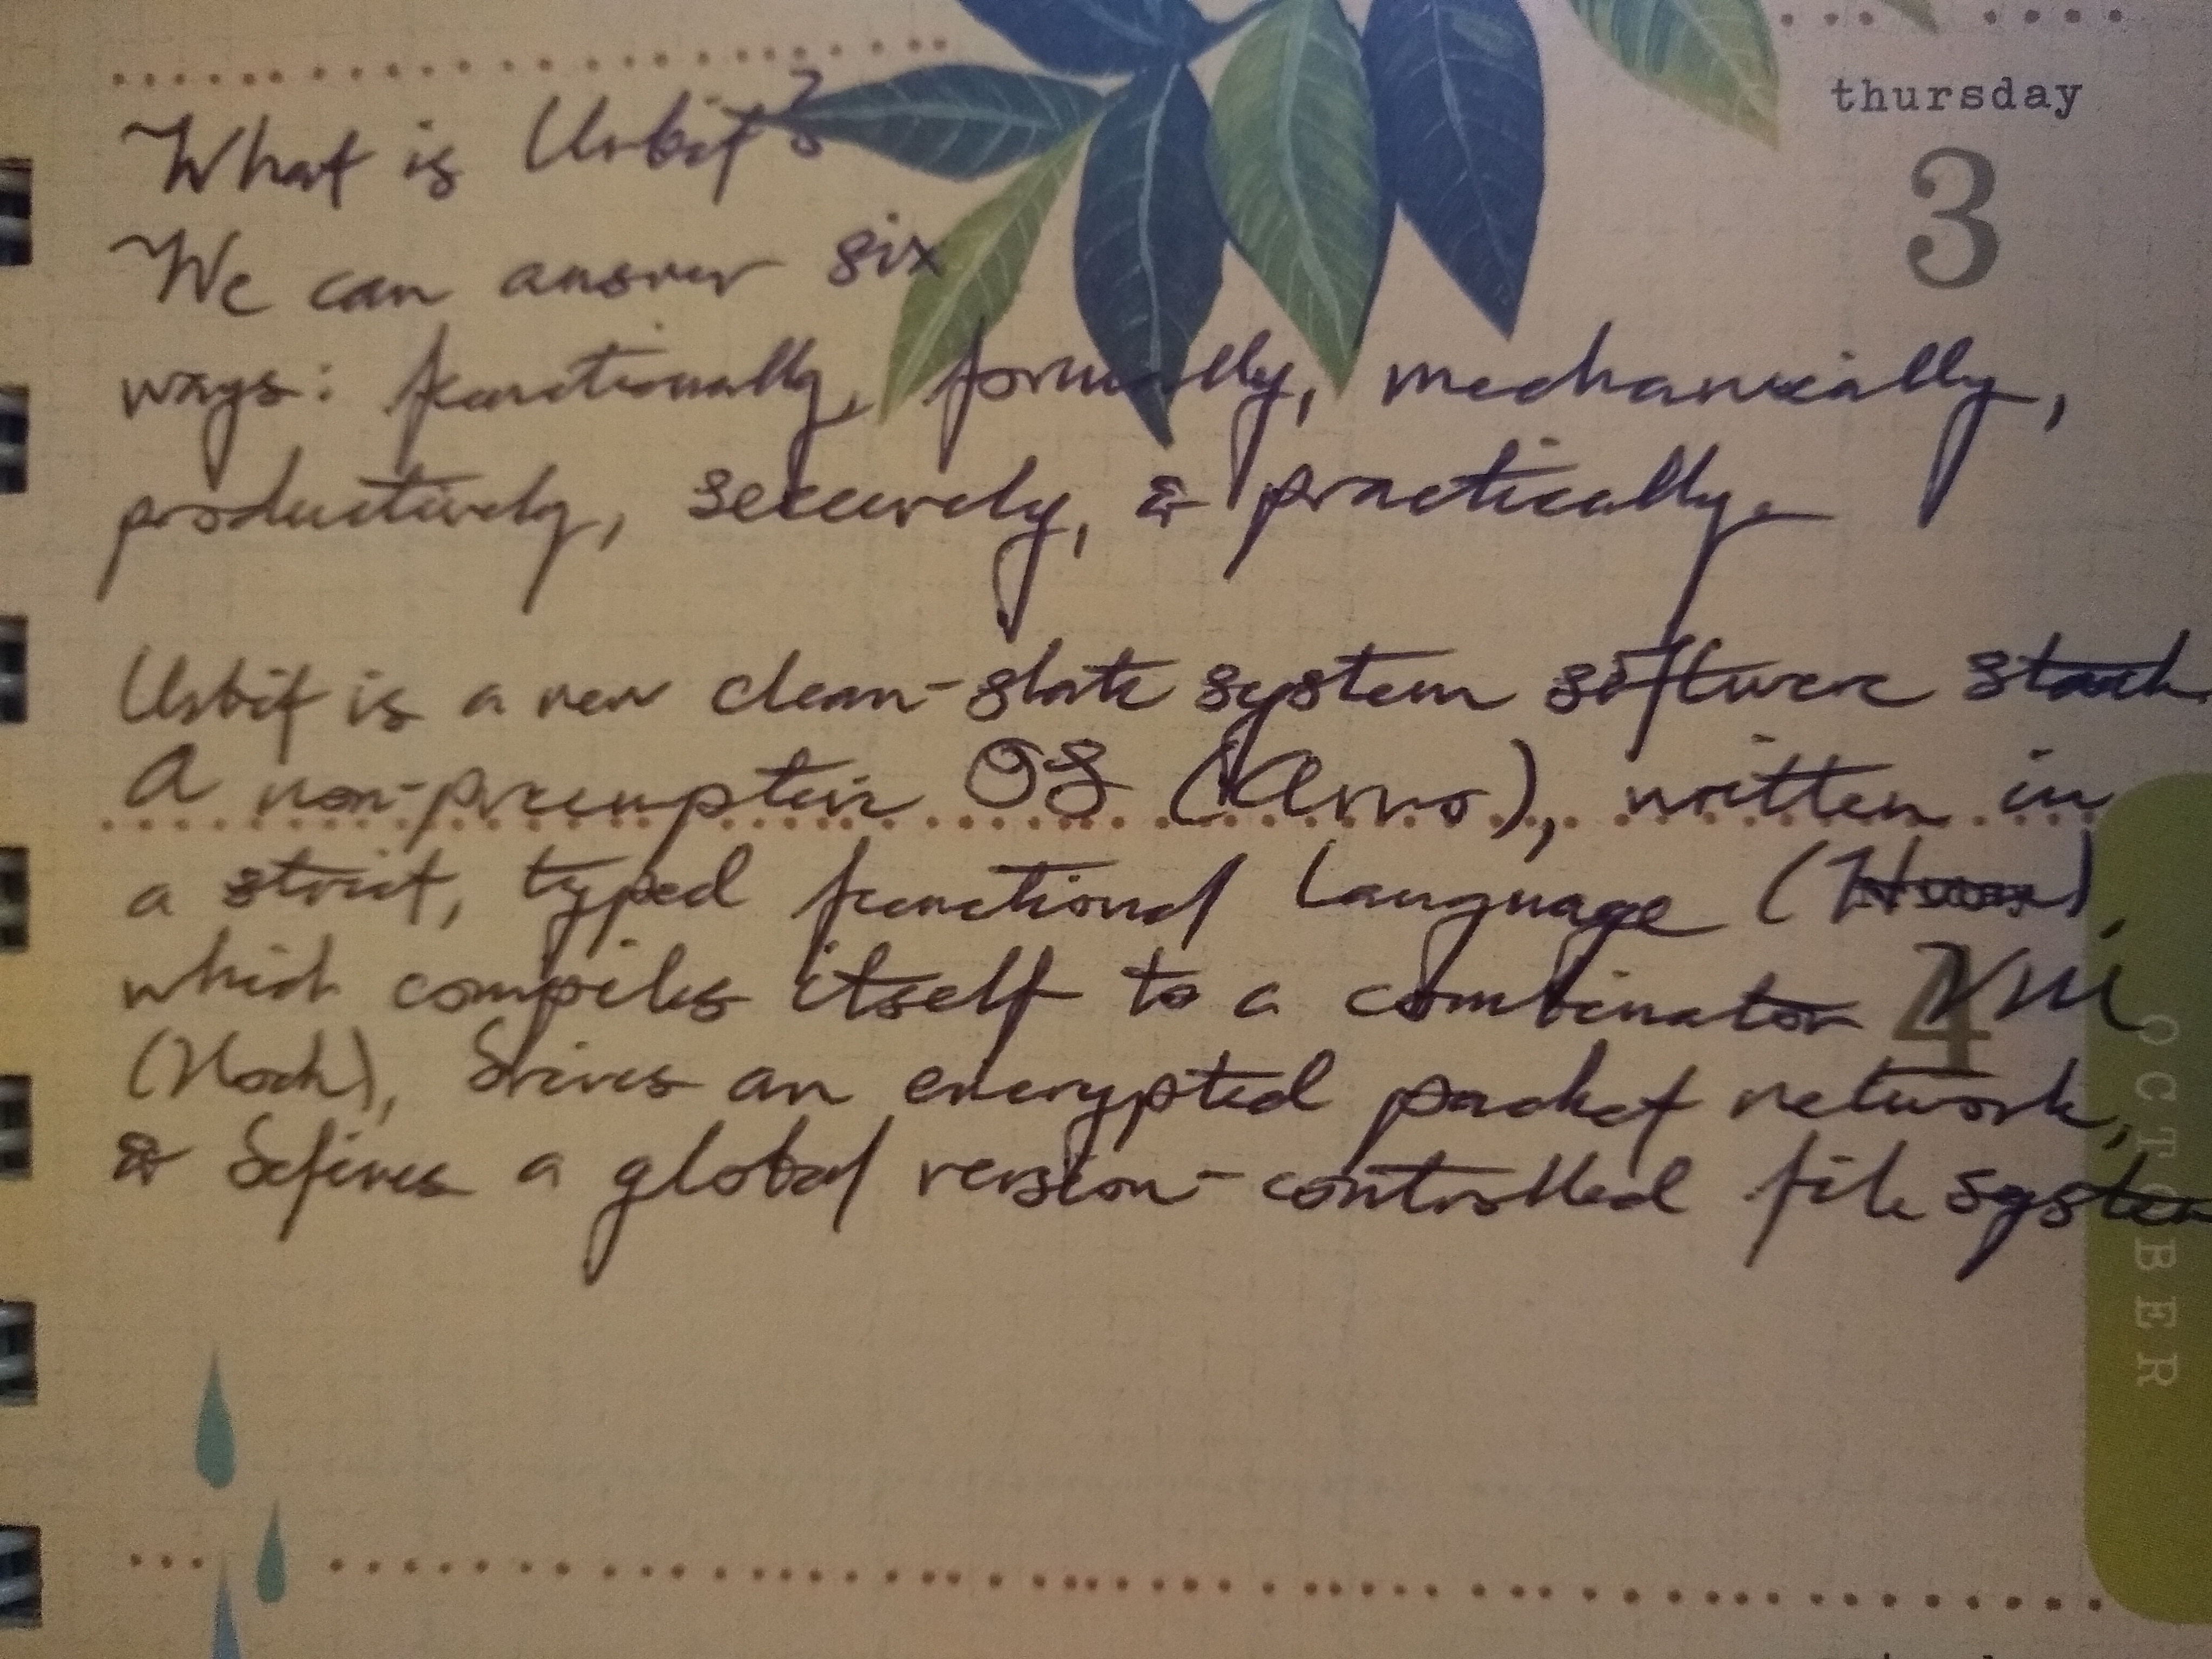 thursday
3
What is Urbit?
We can answer six
ways: functionally, formally, mechanically,
productively, securely, & practically.
Urbit is a new clean-slate system software stack.
A non-preemptive OS (Arvo), written in
a strict, typed functional language (Hoon),
which compiles itself to a combinator VM
4
(Nock), drives an encrypted packet network,
& defines a global version-controlled file system
OCTOBER